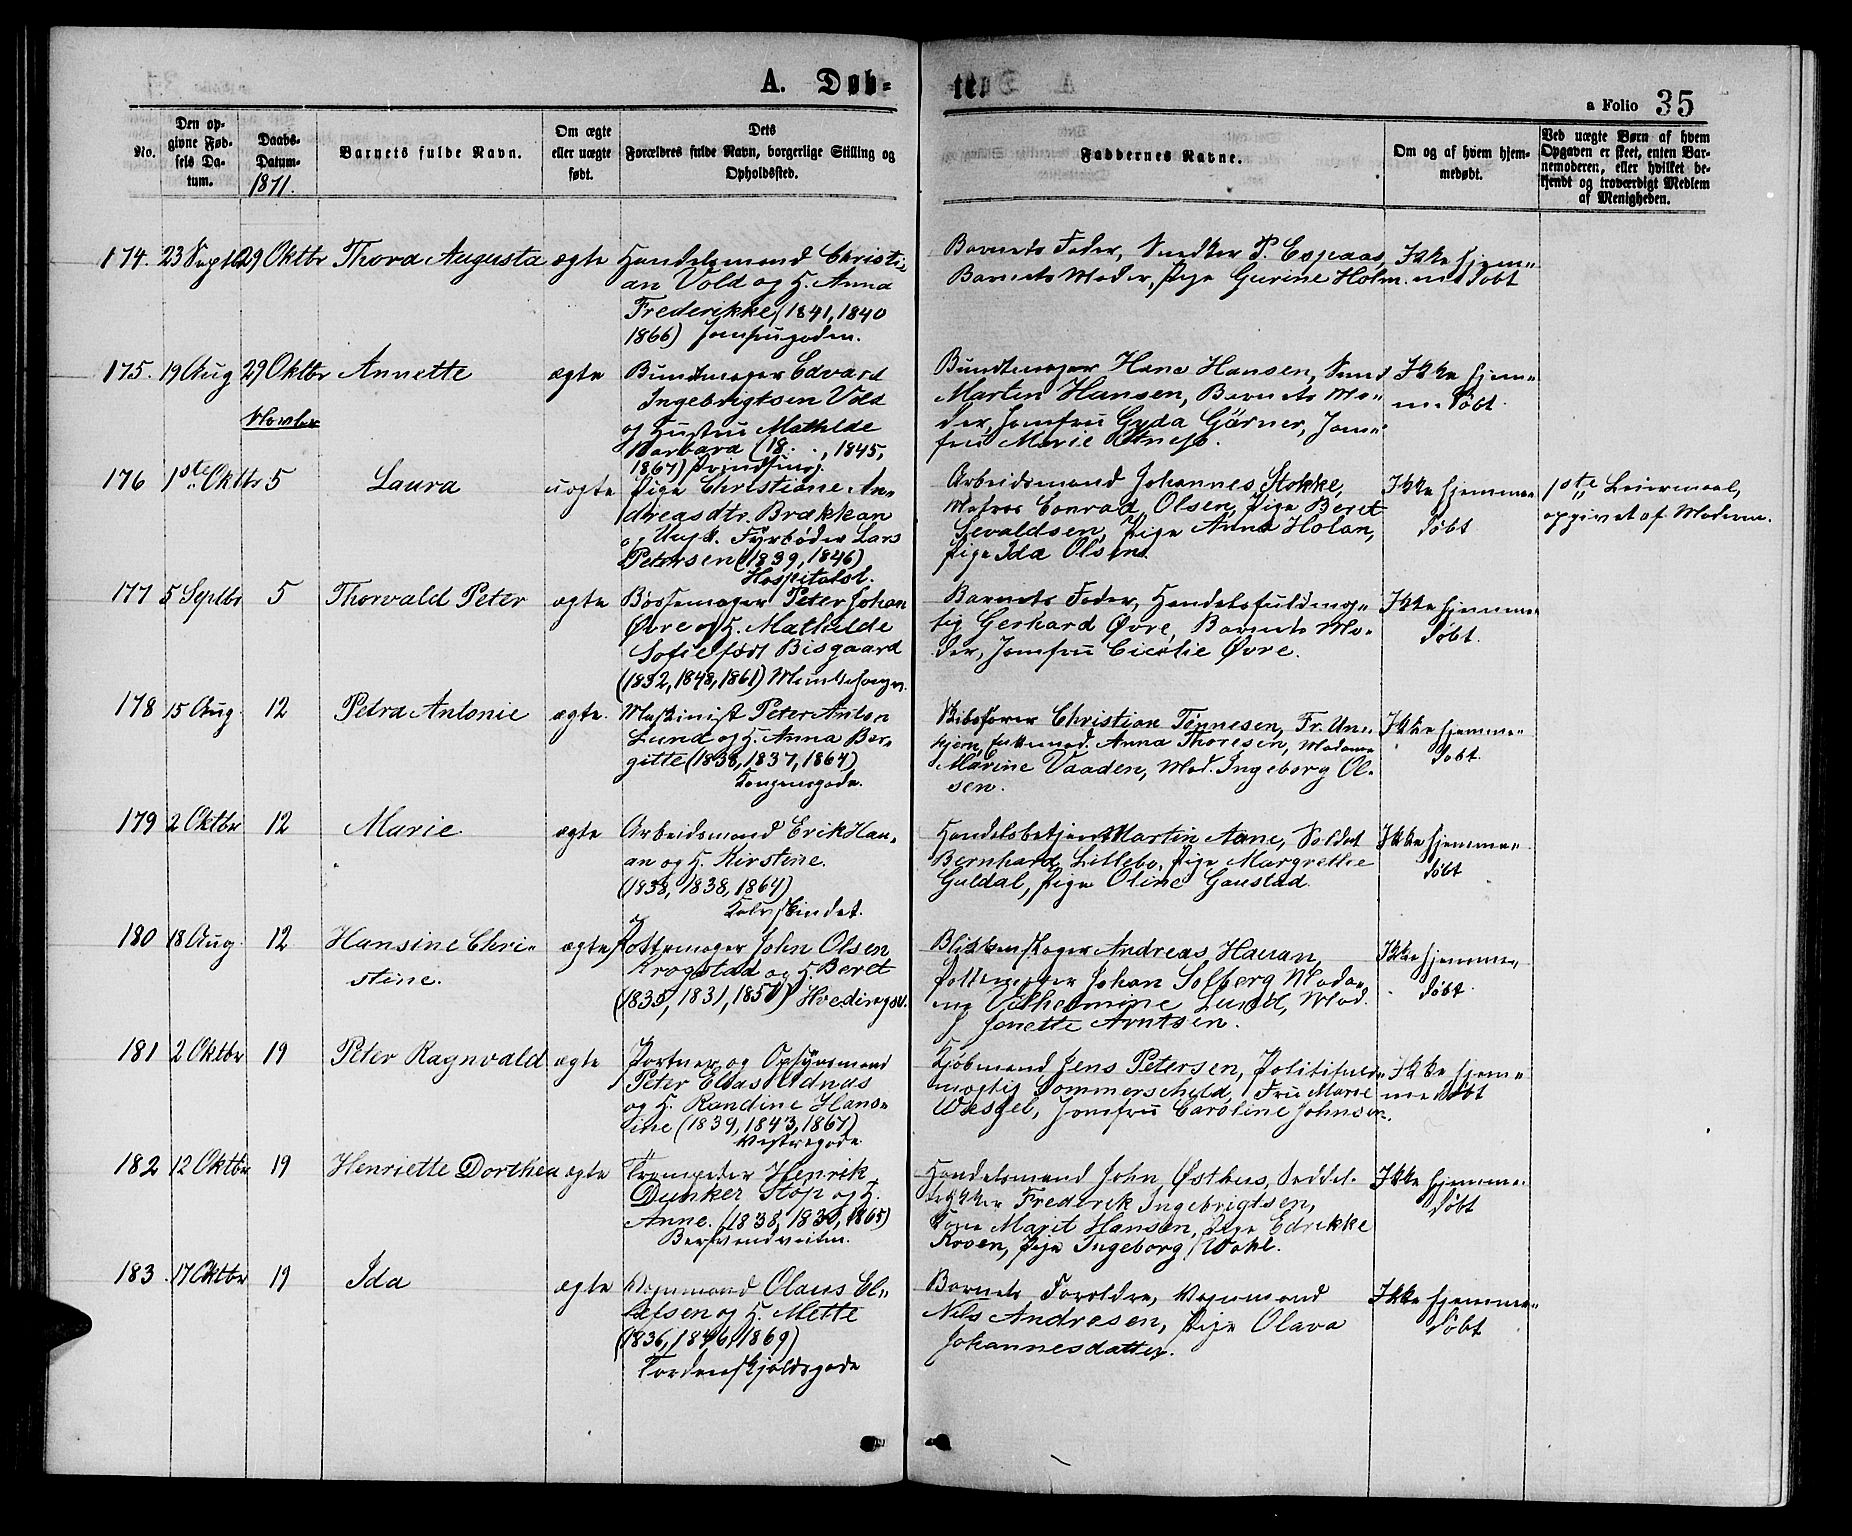 A. Døb-
te.
a Folio 35
No.
Den opgivne Fødsels Datum.
Daabs-Datum. 1871.
Barnets fulde Navn.
Om ægte eller uægte født.
Dets Forældres fulde Navn, borgerlige Stilling og Opholdssted.
Faddernes Navne.
Om og af hvem hjemmedøbt.
Ved uægte Børn af hvem Opgaven er skeet, enten Barnemoderen, eller hvilket bekjendt og troværdigt Medlem af Menigheden.
174. 23 Septbr 29 Oktbr Thora Augusta ægte
Handelsmand Christi-
an Vold og H. Anna
Frederikke (1841, 1840
1866) Jomfrugaden.
Barnets Fader, Snedker P. Espaas,
Barnets Moder, Pige Gurine Holm.
Ikke hjem-
medøbt
175. 19 Aug 29 Oktbr Annette ægte
Bundtmager Edvard
Ingebrigtsen Vold
og Hustru Mathilde
Barbara (18 . . , 1845,
1867) Prindsensg.
Bundtmager Hans Hansen, Svend
Martin Hansen, Barnets Mo-
der, Jomfru Gyda Gärner, Jom-
fru Marie
Ikke hjem-
medøbt.
Novbr
176 1ste Oktbr 5 Laura uægte
Pige Christiane An-
dreasdtr. Brækkan
og Ungk. Fyrbøder Lars
Petersen (1839, 1846)
Hospitalsl.
Arbeidsmand Johannes Stokke,
Matros Conrad Olsen, Pige Beret
Sevaldsen, Pige Anna Holan,
Pige Ida Olsen.
Ikke hjemme-
døbt
1ste Leiermaal,
opgivet af Moderen.
177 5 Septbr 5 Thorvald Peter ægte
Bøssemager Peter Johan
Øvre og H. Mathilde
Sofie født Bisgaard
(1832, 1848, 1861)
Barnets Fader, Handelsfuldmæg-
tig Gerhard Øvre, Barnets Mo-
der, Jomfru Cicilie Øvre.
Ikke hjemme-
døbt.
178 15 Aug. 12 Petra Antonie ægte.
Maskinist Peter Anton
Lund og H. Anna Ber-
gitte (1838, 1837, 1864)
Kongensgade.
Skibsfører Christian Tønnesen, Fr. Un-
hjem, Anna Thoresen, Madame
Marine Vaaden, Mad. Ingeborg Ol-
sen.
Ikke hjemme-
døbt.
179 2 Oktbr 12 Marie ægte
Arbeidsmand Erik Hau-
an og H. Kirstine.
(1838, 1838, 1864)
Kalvskindet.
Handelsbetjent Martin Aune, Soldat
Bernhard Lillebo, Pige Margrethe
Guldal, Pige Oline Gaustad.
Ikke hjemme-
døbt
180 18 Aug. 12 Hansine Chri-
stine. ægte
Pottemager John Olsen
Krogstad og H. Beret
(1835, 1831, 1857) Hvedingsv.
Blikkenslager Andreas Hauan,
Pottemager Johan Solberg, Mada-
me Vilhelmine Lund, Mad.
Janette Arntsen.
Ikke hjemme-
døbt.
181 2 Oktbr 19 Peter Ragnvald ægte
Portner og Opsynsmand
Peter Elias Adnas
og H. Randine Hans-
ine (1839, 1843, 1867)
Vestregade
Kjøbmand Jens Petersen, Politifuld-
mægtig Sommerschyld, Fru Marie
Wessel, Jomfru Caroline Johnsen.
Ikke hjem-
medøbt
182 12 Oktbr 19 Henriette Dorthea ægte
Trompeter Henrik
Dunker Støp og H.
Anne. (1838, 1830, 1865)
Bersvendveiten.
Handelsmand John Østhus, Seddel-
trykker Frederik Ingebrigtsen,
Kone Marit Hansen, Pige Edrikke
Roven, Pige Ingeborg Wahl.
Ikke hjemme-
døbt
183. 17 Oktbr 19 Ida ægte
Vognmand Olaus El-
lefsen og H. Mette
(1836, 1846, 1869)
Tordenskjoldsgade
Barnets Forældre, Vognmand
Nils Andresen, Pige Olava
Johannesdatter.
Ikke hjemme-
døbt